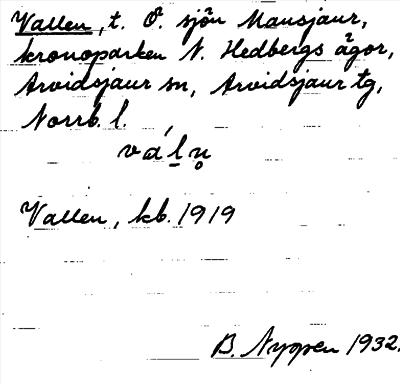 Vallen, t. O. sjön Mausjaur,
kronoparken N. Hedbergs ägor,
Arvidsjaur sn, Arvidsjaur tg,
Norrb. l.
vál̲n̥
Vallen, kb. 1919
B. Nygren 1932.